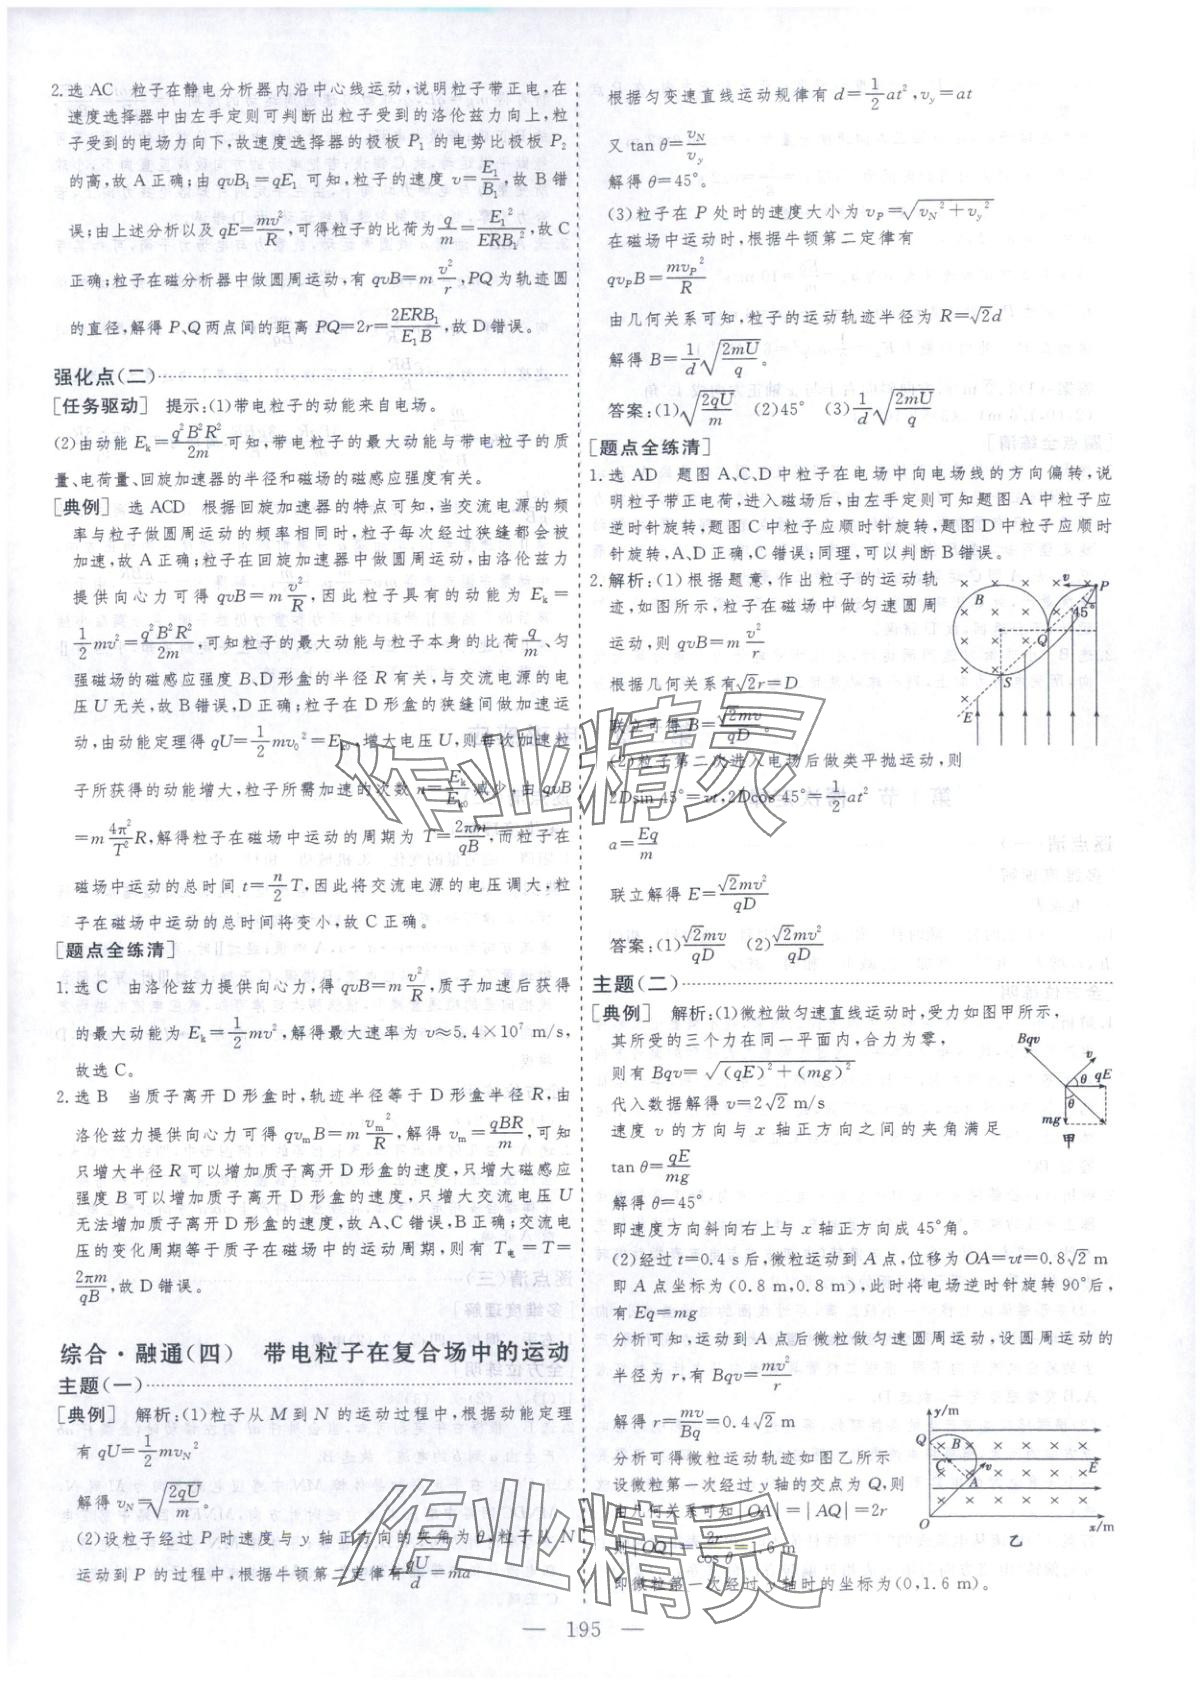 2. 选 AC　粒子在静电分析器内沿中心线运动,说明粒子带正电,在
速度选择器中由左手定则可判断出粒子受到的洛伦兹力向上,粒
子受到的电场力向下,故速度选择器的极板 P₁ 的电势比极板 P₂
的高,故 A 正确;由 qvB₁=qE₁ 可知,粒子的速度 v=E₁/B₁,故 B 错
误;由上述分析以及 qE=mv²/R,可得粒子的比荷为 q/m=E₁²/(ERB₁²),故 C
正确;粒子在磁分析器中做圆周运动,有 qvB=m v²/r,PQ 为轨迹圆
的直径,解得 P、Q 两点间的距离 PQ=2r=2ERB₁/(E₁B),故 D 错误。
强化点(二)
[任务驱动]　提示:(1)带电粒子的动能来自电场。
(2)由动能 Eₖ=q²B²R²/2m 可知,带电粒子的最大动能与带电粒子的质
量、电荷量、回旋加速器的半径和磁场的磁感应强度有关。
[典例]　选 ACD　根据回旋加速器的特点可知,当交流电源的频
率与粒子做圆周运动的频率相同时,粒子每次经过狭缝都会被
加速,故 A 正确;粒子在回旋加速器中做圆周运动,由洛伦兹力
提供向心力可得 qvB=m v²/R,因此粒子具有的动能为 Eₖ=
1/2 mv²=q²B²R²/2m,可知粒子的最大动能与粒子本身的比荷 q/m、匀
强磁场的磁感应强度 B、D 形盒的半径 R 有关,与交流电源的电
压 U 无关,故 B 错误,D 正确;粒子在 D 形盒的狭缝间做加速运
动,由动能定理得 qU=1/2 mv₀²=Eₖ₀,增大电压 U,则每次加速粒
子所获得的动能增大,粒子所需加速的次数 n=Eₖ/Eₖ₀ 减少,由 qvB
=m 4π²/T² R,解得粒子在磁场中运动的周期为 T=2πm/qB,而粒子在
磁场中运动的总时间 t=n/2 T,因此将交流电源的电压调大,粒
子在磁场中运动的总时间将变小,故 C 正确。
[题点全练清]
1. 选 C　由洛伦兹力提供向心力,得 qvB=m v²/R,质子加速后获得
的最大动能为 Eₖ=1/2 mv²,解得最大速率为 v≈5.4×10⁷ m/s,
故选 C。
2. 选 B　当质子离开 D 形盒时,轨迹半径等于 D 形盒半径 R,由
洛伦兹力提供向心力可得 qvₘB=m vₘ²/R,解得 vₘ=qBR/m,可知
只增大半径 R 可以增加质子离开 D 形盒的速度,只增大磁感应
强度 B 可以增加质子离开 D 形盒的速度,只增大交流电压 U
无法增加质子离开 D 形盒的速度,故 A、C 错误,B 正确;交流电
压的变化周期等于质子在磁场中的运动周期,则有 T电=T=
2πm/qB,故 D 错误。
综合·融通(四)　带电粒子在复合场中的运动
主题(一)
[典例]　解析:(1)粒子从 M 到 N 的运动过程中,根据动能定理
有 qU=1/2 mv_N²
解得 v_N=√(2qU/m)。
(2)设粒子经过 P 时速度与 y 轴正方向的夹角为 θ,粒子从 N
运动到 P 的过程中,根据牛顿第二定律有 qU/d=ma
根据匀变速直线运动规律有 d=1/2 at²,v_y=at
又 tan θ=v_N/v_y
解得 θ=45°。
(3)粒子在 P 处时的速度大小为 v_P=√(v_N²+v_y²)
在磁场中运动时,根据牛顿第二定律有
qv_PB=mv_P²/R
由几何关系可知,粒子的运动轨迹半径为 R=√2d
解得 B=1/d √(2mU/q)。
答案:(1)√(2qU/m)　(2)45°　(3)1/d √(2mU/q)
[题点全练清]
1. 选 AD　题图 A、C、D 中粒子在电场中向电场线的方向偏转,说
明粒子带正电荷,进入磁场后,由左手定则可知题图 A 中粒子应
逆时针旋转,题图 C 中粒子应顺时针旋转,题图 D 中粒子应顺时
针旋转,A、D 正确,C 错误;同理,可以判断 B 错误。
2. 解析:(1)根据题意,作出粒子的运动轨
迹,如图所示,粒子在磁场中做匀速圆周
运动,则 qvB=m v²/r
根据几何关系有√2r=D
联立可得 B=√2mv/qD。
(2)粒子第二次进入电场后做类平抛运动,则
2Dsin 45°=vt,2Dcos 45°=1/2 at²
a=Eq/m
联立解得 E=√2mv²/qD
答案:(1)√2mv/qD　(2)√2mv²/qD
B
v
P
45°
Q
S
E
主题(二)
[典例]　解析:(1)微粒做匀速直线运动时,受力如图甲所示,
其所受的三个力在同一平面内,合力为零,
则有 Bqv=√((qE)²+(mg)²)
代入数据解得 v=2√2 m/s
速度 v 的方向与 x 轴正方向之间的夹角满足
tan θ=qE/mg
解得 θ=45°
即速度方向斜向右上与 x 轴正方向成 45°角。
(2)经过 t=0.4 s 后,微粒运动到 A 点,位移为 OA=vt=0.8√2 m
即 A 点坐标为(0.8 m,0.8 m),此时将电场逆时针旋转 90°后,
有 Eq=mg
分析可知,运动到 A 点后微粒做匀速圆周运动,设圆周运动的
半径为 r,有 Bqv=mv²/r
解得 r=mv/Bq=0.4√2 m
分析可得微粒运动轨迹如图乙所示
设微粒第一次经过 y 轴的交点为 Q,则
由几何关系可知|OA|=|AQ|=2r
则|OQ|=2r/cos θ=1.6 m
即微粒第一次经过 y 轴时的坐标为(0,1.6 m)。
Bqv
v
θ
qE
θ
mg
甲
y/m
Q
B
C
v
E
A
O
x/m
乙
作业精灵
作业精灵
— 195 —